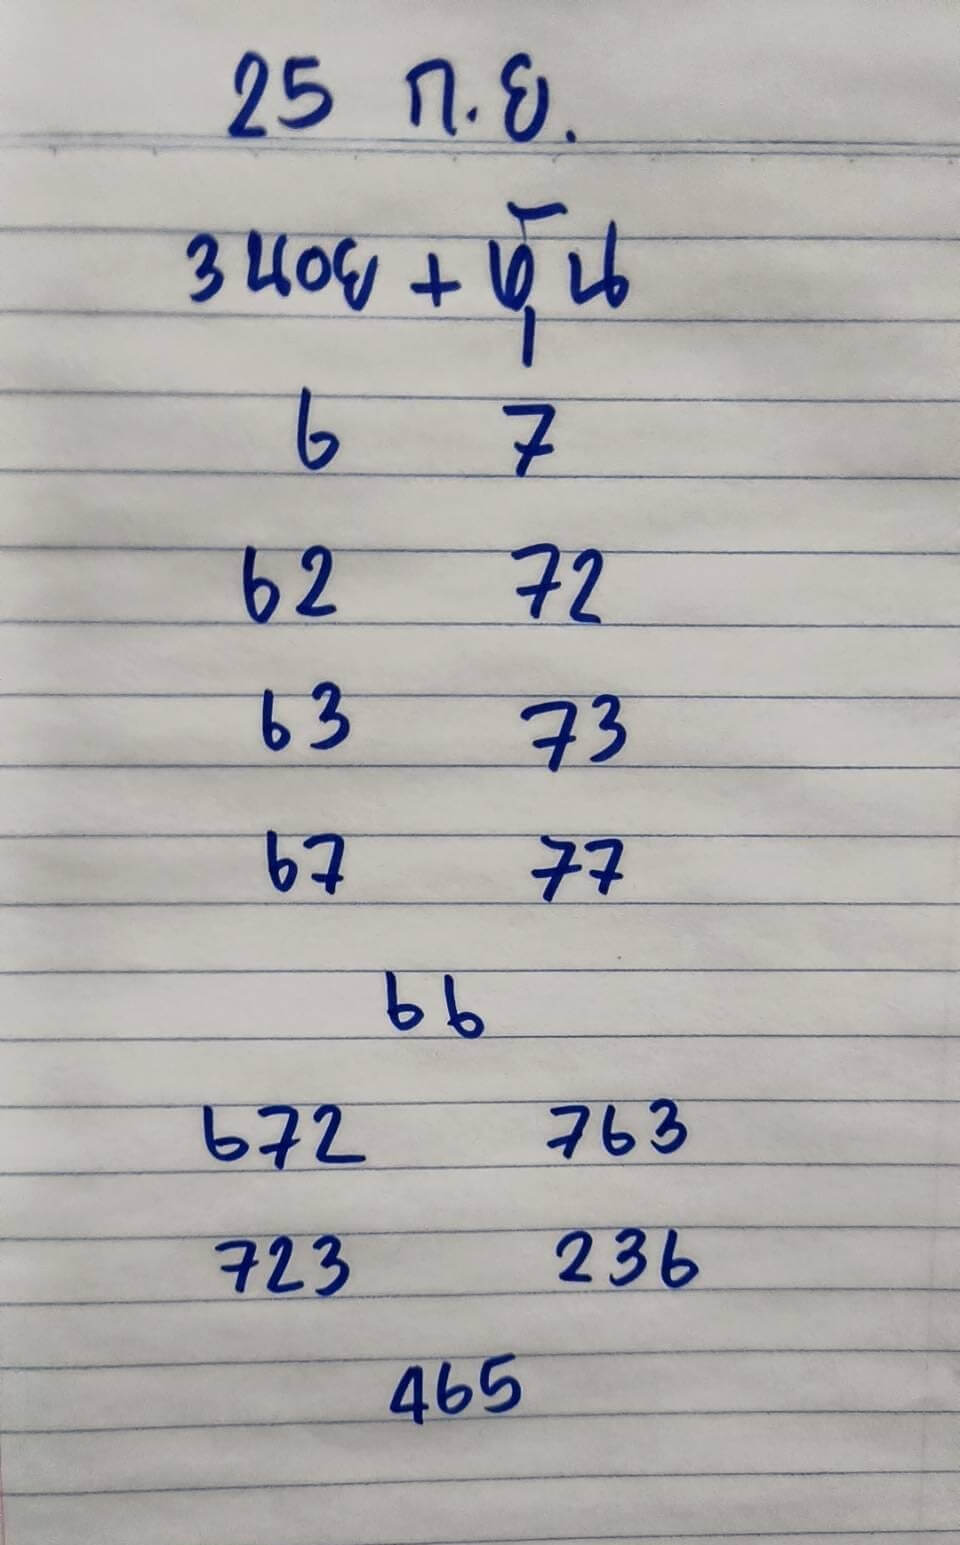 25 ก.ย.
3 นอย + หุ้น
6 7
62 72
63 73
67 77
66
672 763
723 236
465